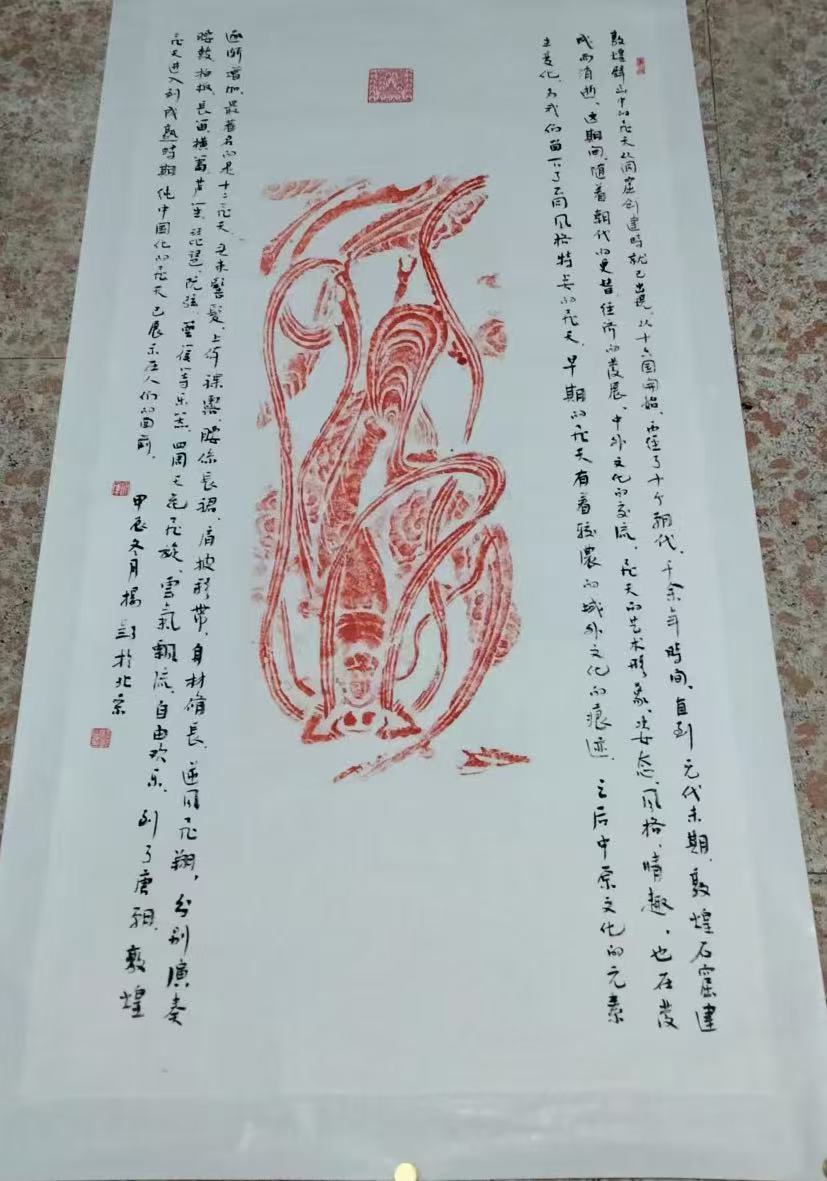 敦煌壁画中的飞天从洞窟创建时就已出现，从十六国开始，历经了十个朝代，千余年時间，直到元代末期，敦煌石窟建
成而消逝，这期间，随着朝代的更替，经济的發展，中外文化的交流，飞天的艺术形象、姿态、風格、情趣，也在發
生变化，为我们留下了不同風格特点的飞天。早期的飞天有着较濃的域外文化的痕迹，之后中原文化的元素
逐渐增加，最著名的是十二飞天，无束髻髮，上体裸露，腰係長裙，肩披彩带，身材脩長，逆風飞翔，分别演奏
腰鼓、拍板、長笛、横簫、芦笙、琵琶、阮弦、箜篌等乐器，四周天花飞旋，雲氣飄流，自由欢乐，到了唐朝，敦煌
飞天进入到成熟時期，純中国化的飞天已展示在人们的面前。
甲辰冬月 於北京